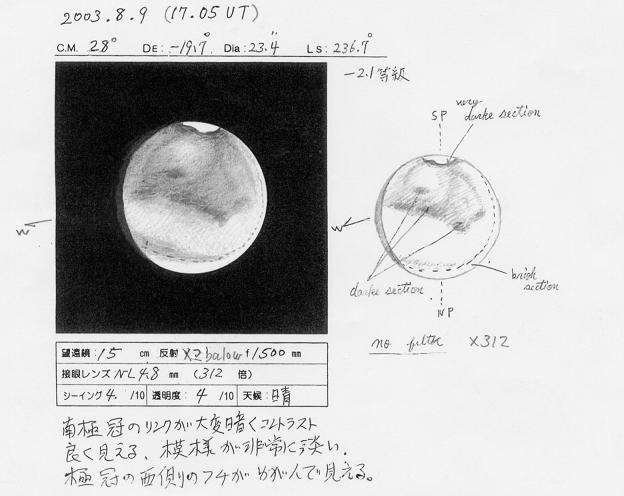 2003.8.9 (17.05 UT)
C.M. 28° DE: -19.7° Dia: 23.4" Ls: 236.7°
-2.1等級
very
darke section
SP
W
W
darke section
brigh section
NP
no filter ×312
望遠鏡: 15 cm 反射 ×2 balow f 1500 mm
接眼レンズ NL 4.8 mm (312 倍)
シーイング 4. /10 透明度: 4 /10 天候: 晴
南極冠のリンクが大変暗くコントラスト
良く見える、模様が非常に淡い.
極冠の西側のフチがゆがんで見える。